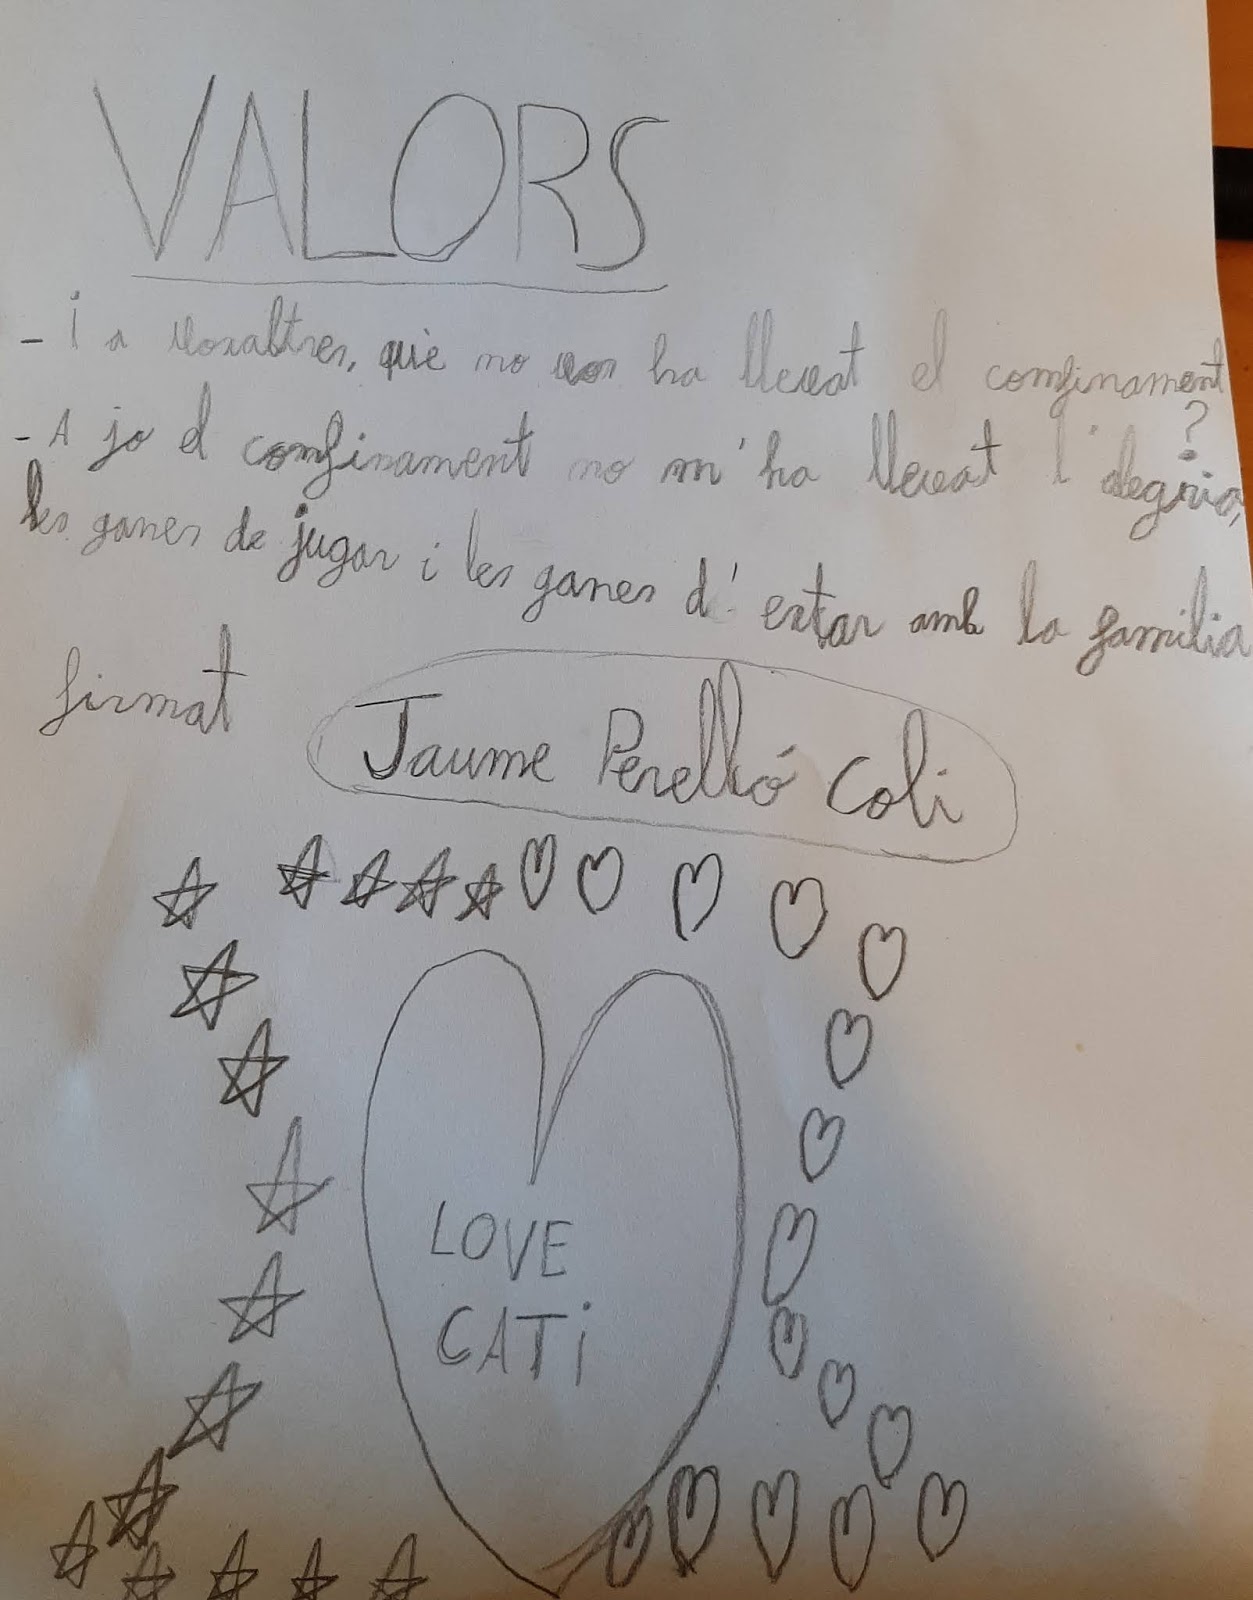 VALORS
- i a vosaltres, què no vos ha llevat el confinament
?
- A jo el confinament no m'ha llevat l'alegria,
les ganes de jugar i les ganes d'estar amb la familia
firmat Jaume Perelló Coli
LOVE
CATi